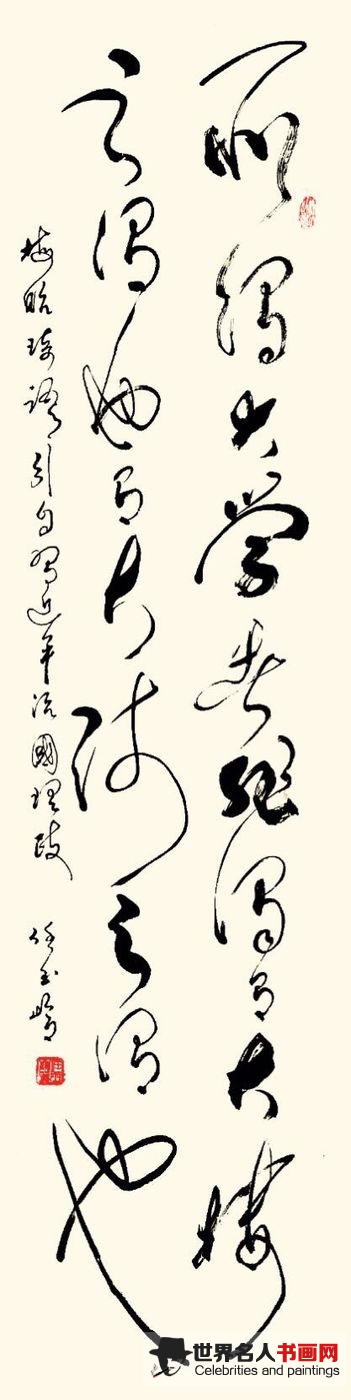 所謂大學者非謂有大樓
之謂也有大師之謂也
梅貽琦語引自習近平治國理政
任玉嶺
世界名人书画网
Celebrities and paintings